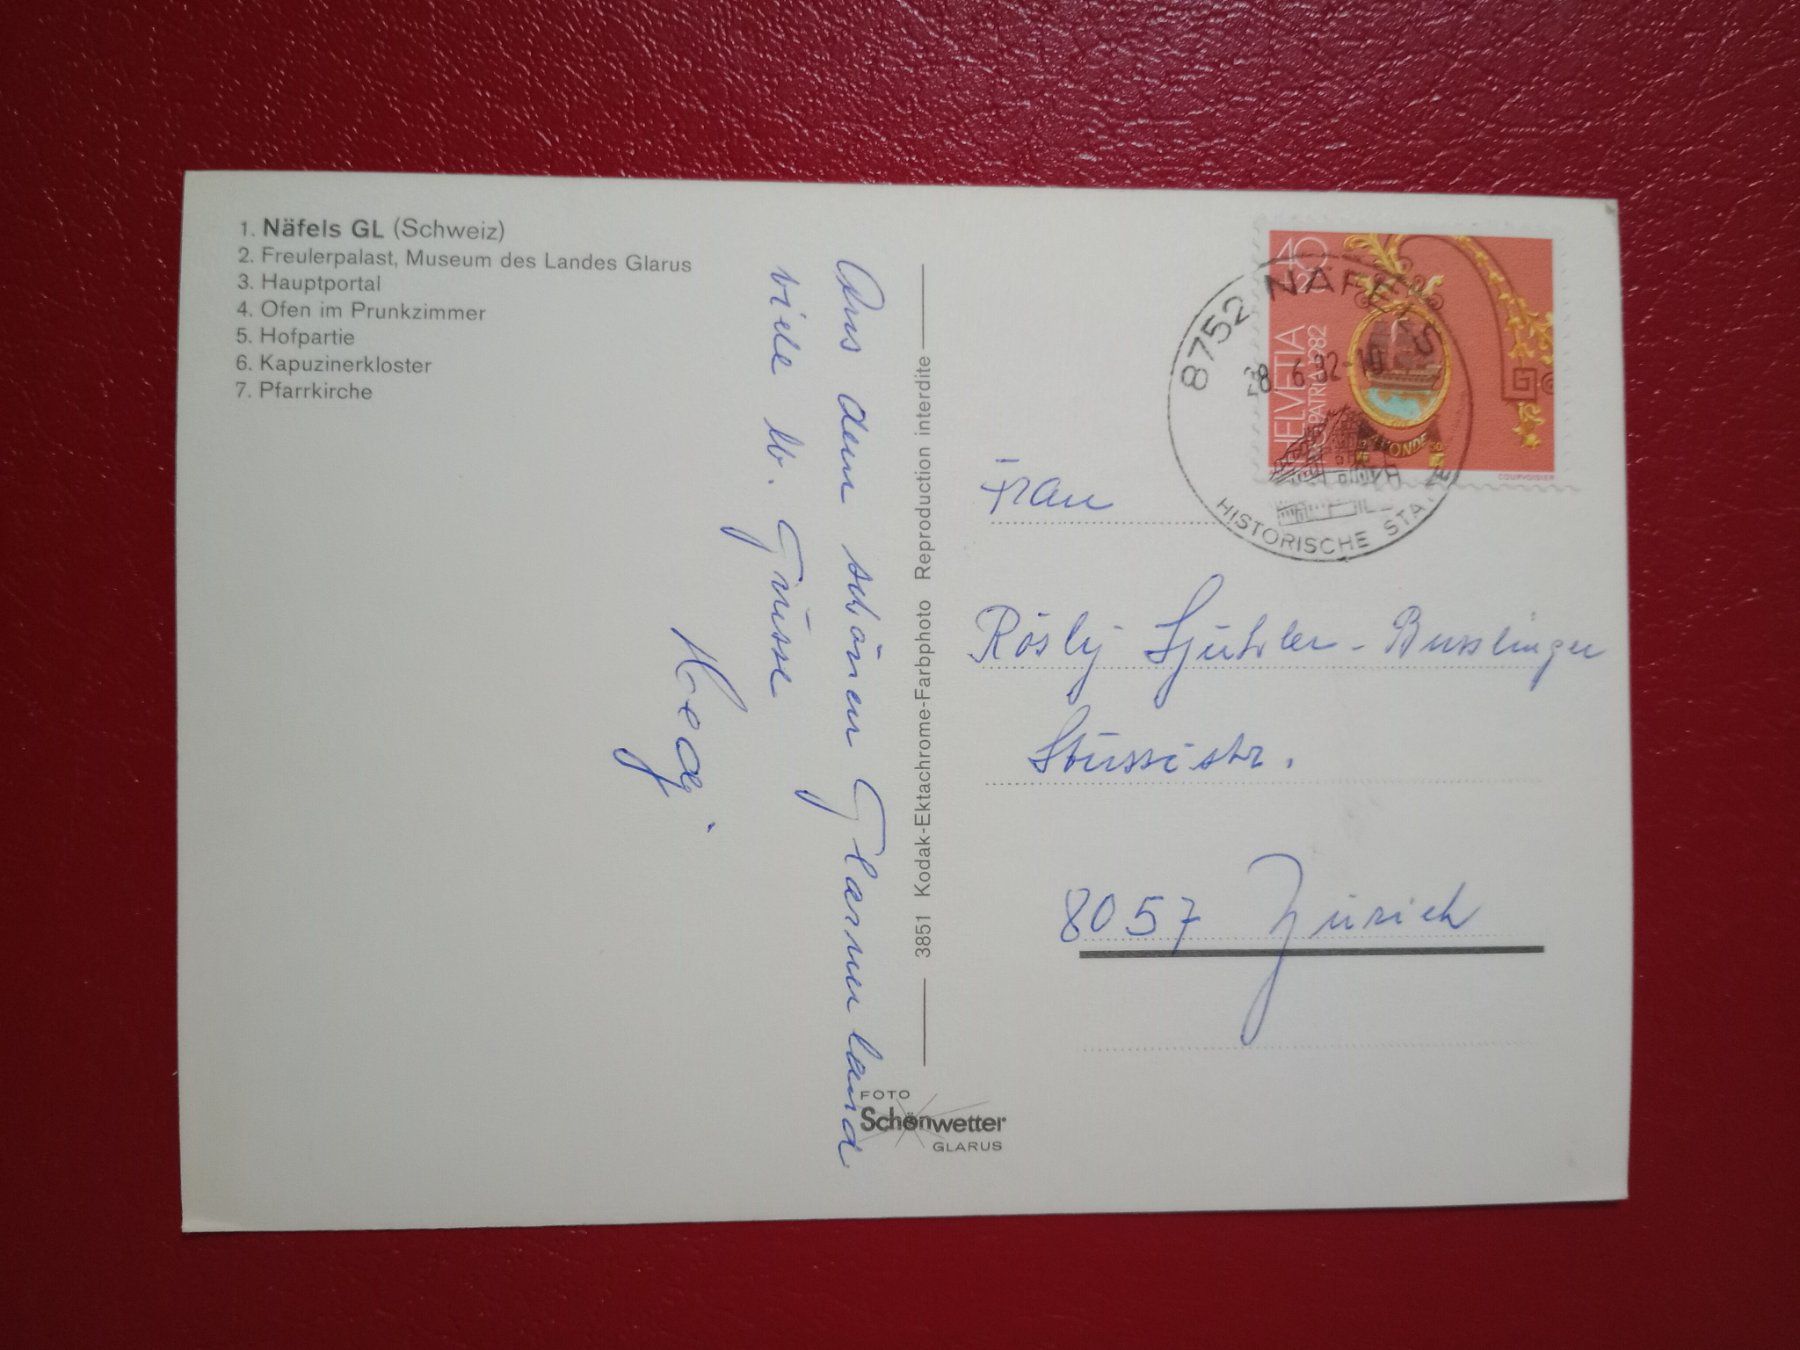 1. Näfels GL (Schweiz)
2. Freulerpalast, Museum des Landes Glarus
3. Hauptportal
4. Ofen im Prunkzimmer
5. Hofpartie
6. Kapuzinerkloster
7. Pfarrkirche
Aus dem schönen Glarnerland
viele lb. Grüsse
3851 Kodak-Ektachrome-Farbphoto Reproduction interdite
FOTO
Schönwetter
GLARUS
40
20
HELVETIA
PRO PATRIA 1982
COURVOISIER
8752 NÄFELS
28. 6. 82-10
HISTORISCHE
Frau
Rösly
Stüssistr.
8057 Zürich